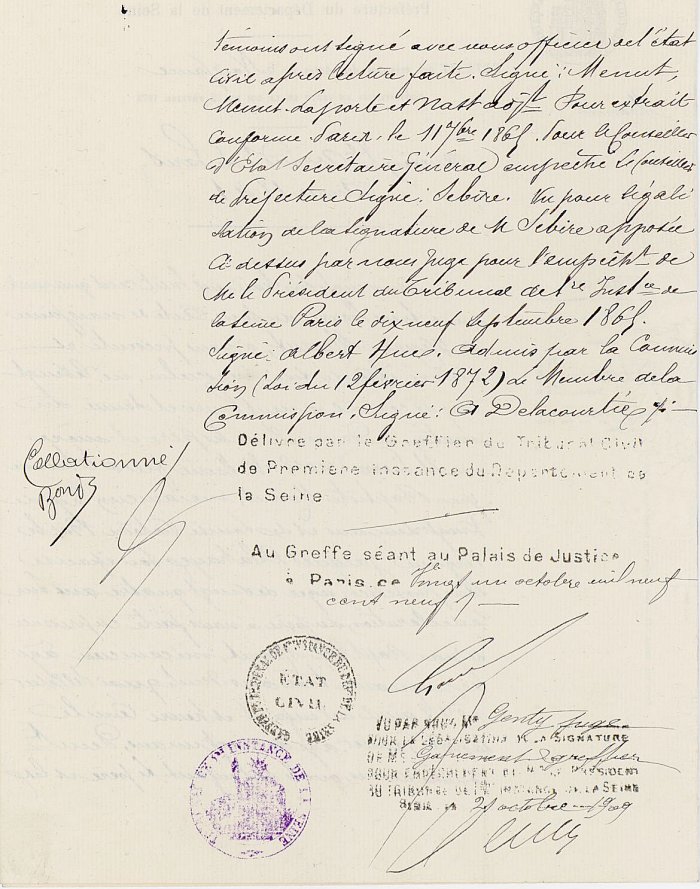 témoins ont signé avec nous officier de l'état
civil après lecture faite. Signé: Menut,
Menut. Laporte et Nast adjt. Pour extrait
conforme. Paris. le 11 7bre 1865. Pour le Conseiller
d'Etat Secrétaire Général empêché le Conseiller
de Préfecture Signé: Sebire. Vu pour légali
sation de la signature de M Sebire apposée
ci-dessus par nous juge pour l'empêcht de
M. le Président du Tribunal de 1re Instce de
la Seine Paris le dix neuf Septembre 1865.
Signé: Albert Hue. Admis par la Commis
sion (Loi du 12 février 1872) Le Membre de la
Commission. Signé: A Delacourtie
Délivré par le Greffier du Tribunal Civil
de Première Instance du Département de
la Seine
Collationné
Au Greffe séant au Palais de Justice
à Paris ce Vingt un octobre mil neuf
cent neuf
ETAT
CIVIL
VU PAR NOUS Mr Genty Juge
POUR LA LEGALISATION DE LA SIGNATURE
DE Mr greffier
POUR EMPECHEMENT DE Mr LE PRESIDENT
DU TRIBUNAL DE 1re INSTANCE DE LA SEINE
PARIS LE 21 octobre 1909
INSTANCE DE LA SEINE